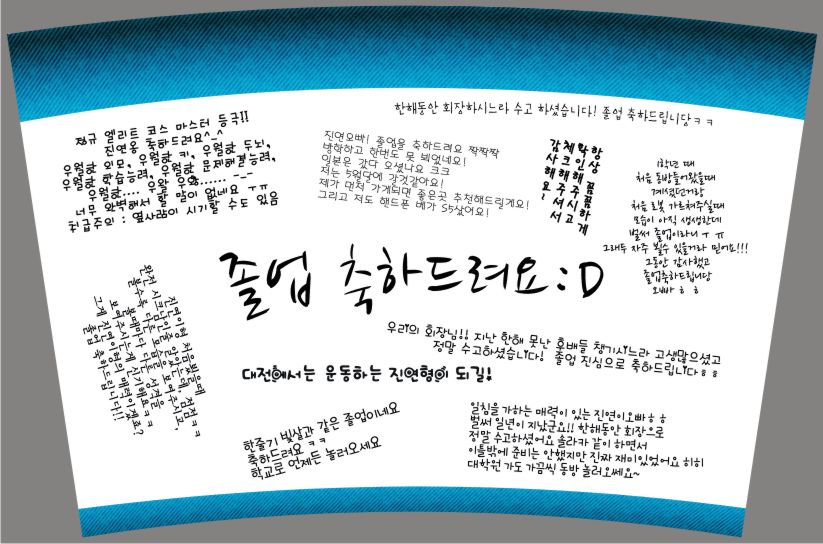 한해동안 회장하시느라 수고 하셨습니다! 졸업 축하드립니당ㅋㅋ
정규 엘리트 코스 마스터 등극!!
진연옹 축하드려요^_^
우월한 외모, 우월한 키, 우월한 두뇌,
우월한 학습능력, 우월한 문제해결능력,
우월한.... 우왈 우..... -_-
너무 완벽해서 할 말이 없네요 ㅜㅠ
취급주의 : 옆사람이 시기할 수도 있음
진연오빠! 졸업을 축하드려요 짝짝짝
방학하고 한번도 못 뵜었네요!
일본은 갔다 오셨나요 크크
저는 5월달에 갈것같아요!
제가 먼저 가게되면 좋은곳 추천해드릴게요!
그리고 저도 핸드폰 베가 S5샀어요!
항상 꼼꼼하게
학인해주시고
체크해주셔서
감사해요
1학년 때
처음 동방들어왔을때
계셨던거랑
처음 로봇 가르쳐주실때
모습이 아직 생생한데
벌써 졸업이라니ㅜㅠ
그래두 자주 뵐수 있을거라 믿어요!!!
그동안 감사했고
졸업축하드립니당
오빠ㅎㅎ
졸업 축하드려요:D
진연이형 처음봤을때
완전 시크남인줄 알았는데, 점점ㅋㅋ
볼수록 다른 모습을 보여주시고,
볼때마다 다른 성격을
보여주시는게 신기해요ㅋㅋ
그게 진연이형의 매력이겠죠?
졸업 축하드립니다!!
우리의 회장님!! 지난 한해 못난 후배들 챙기시느라 고생많으셨고
정말 수고하셨습니다! 졸업 진심으로 축하드립니다ㅎㅎ
대전에서는 운동하는 진연형이 되길!
한줄기 빛살과 같은 졸업이네요
축하드려요ㅋㅋ
학교로 언제든 놀러오세요
일침을가하는 매력이 있는 진연이오빠ㅎㅎ
벌써 일년이 지났군요!! 한해동안 회장으로
정말 수고하셨어요 솔라카 같이 하면서
이틀밖에 준비는 안했지만 진짜 재미있었어요 히히
대학원 가도 가끔씩 동방 놀러오쎄요~